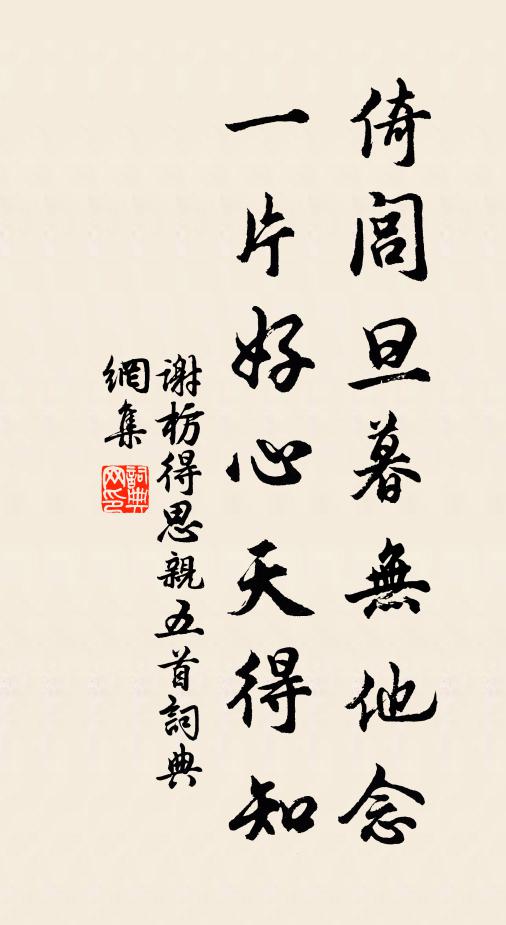 倚閭旦暮無他念
一片好心天得知
謝枋得思親五首詞典
網集
詞典
网印